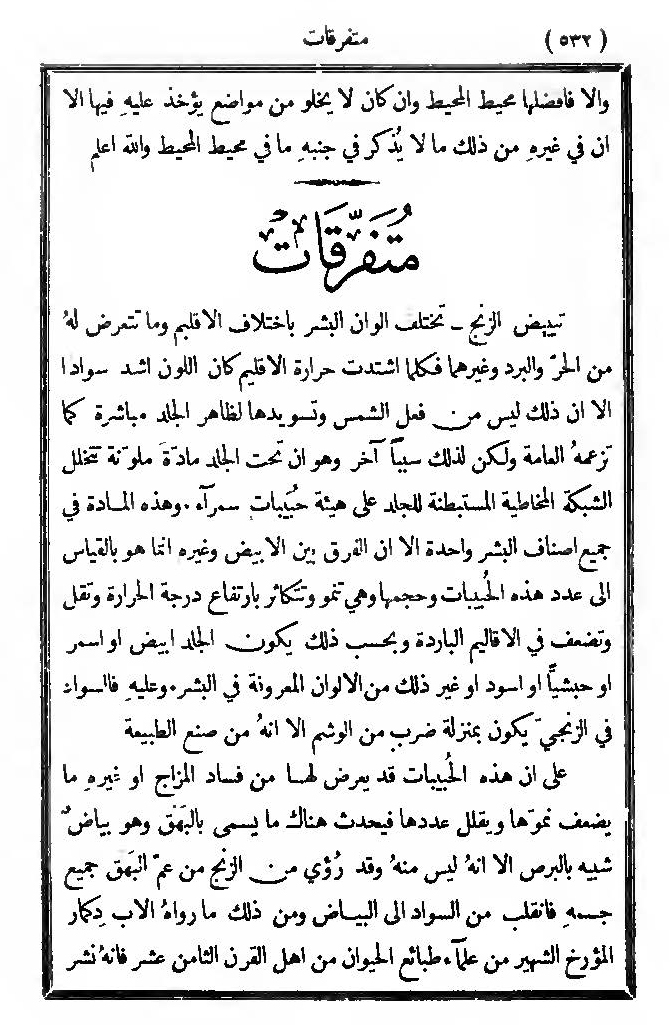 ( ٥٣٢ ) متفرقات
والا فافضلها محيط المحيط وان كان لا يخلو من مواضع يؤخذ عليهِ فيها الا
ان في غيرهِ من ذلك ما لا يُذكر في جنبهِ ما في محيط المحيط والله اعلم
مُتَفَرِّقَات
تبييض الزنج ــ تختلف الوان البشر باختلاف الاقليم وما تتعرض لهُ
من الحرّ والبرد وغيرهما فكلما اشتدت حرارة الاقليم كان اللون اشد سوادا
الا ان ذلك ليس من فعل الشمس وتسويدها لظاهر الجلد مباشرة كما
تزعمهُ العامة ولكن لذلك سبباً آخر وهو ان تحت الجلد مادّة ملونة تتخلل
الشبكة المخاطية المستبطنة للجلد على هيئة حُبَيبات سمرآء . وهذه المادة في
جميع اصناف البشر واحدة الا ان الفرق بين الابيض وغيره انما هو بالقياس
الى عدد هذه الحُبيبات وحجمها وهي تنمو وتتكاثر بارتفاع درجة الحرارة وتقل
وتضعف في الاقاليم الباردة وبحسب ذلك يكون الجلد ابيض او اسمر
او حبشياً او اسود او غير ذلك من الالوان المعروفة في البشر . وعليهِ فالسواد
في الزنجيّ يكون بمنزلة ضرب من الوشم الا انهُ من صنع الطبيعة
على ان هذه الحُبيبات قد يعرض لها من فساد المزاج او غيرهِ ما
يضعف نموّها ويقلل عددها فيحدث هناك ما يسمى بالبَهَق وهو بياضٌ
شبيه بالبرص الا انهُ ليس منهُ وقد رُؤي من الزنج من عمّ البَهق جميع
جسمهِ فانقلب من السواد الى البياض ومن ذلك ما رواهُ الاب دِكمار
المؤرخ الشهير من علمآء طبائع الحيوان من اهل القرن الثامن عشر فانهُ نشر